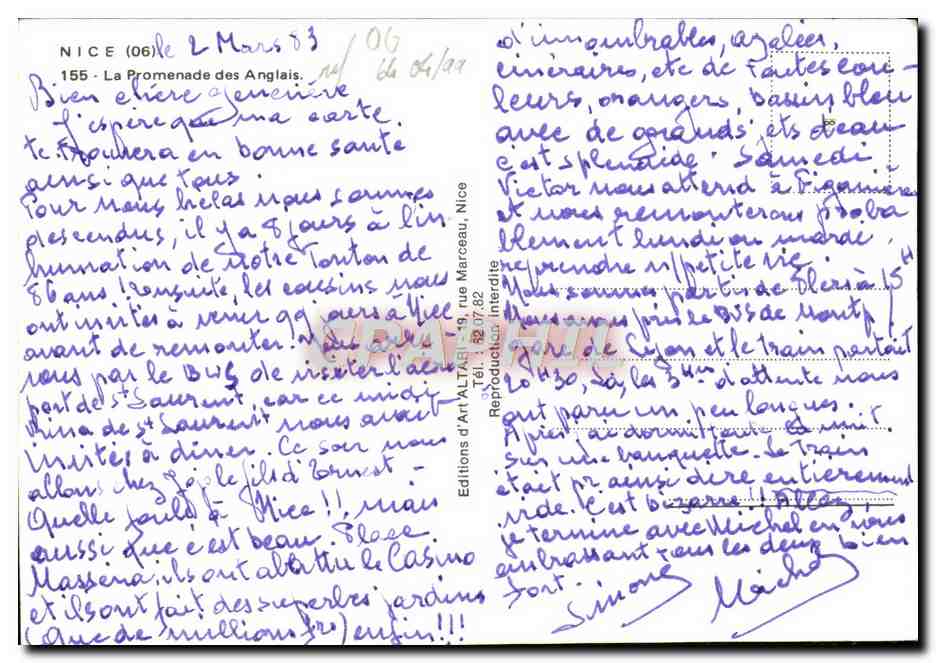 NICE (06) le 2 Mars 83
155 - La Promenade des Anglais.
06
Bien chère Geneviève
J'espère que ma carte
te trouvera en bonne santé
ainsi que tous.
Pour nous hélas nous sommes
descendus, il y a 8 jours à l'in-
humation de notre Tonton de
86 ans ! ensuite, les cousins nous
ont invités à venir qq jours à Nice
avant de remonter. Nous
nous par le BUS de visiter l'aéro
port de St Laurent, car ce midi
Nina de St Laurent nous avait
invités à diner. Ce soir nous
allons chez le fils d'Ernest -
Quelle foule à Nice !!, mais
aussi que c'est beau. Place
Masséna, ils ont abattu le Casino
et ils ont fait des superbes jardins
(que de millions frs) enfin !!!
d'innombrables, azalées,
cinéraires, etc de toutes cou-
leurs, orangers, bassin bleu
avec de grands jets d'eau
c'est splendide. Samedi
Victor nous attend à Figanières
et nous remonterons proba
blement lundi ou mardi,
reprendre n/petite vie.
Nous sommes partis de Flers à 15H
Nous avons pris le BUS de Montp/
gare de Lyon et le train partait
20H30, là, les 3H d'attente nous
ont paru un peu longues.
Après j'ai dormi toute la nuit
sur une banquette. Le train
était pr ainsi dire entièrement
vide. C'est bizarre !! Allez,
je termine avec Michel en vous
embrassant tous les deux bien
fort.
Simone Michel
Editions d'Art ALTARI - 19, rue Marceau, Nice
Tél. : 82.07.82
Reproduction interdite
CPARAMA